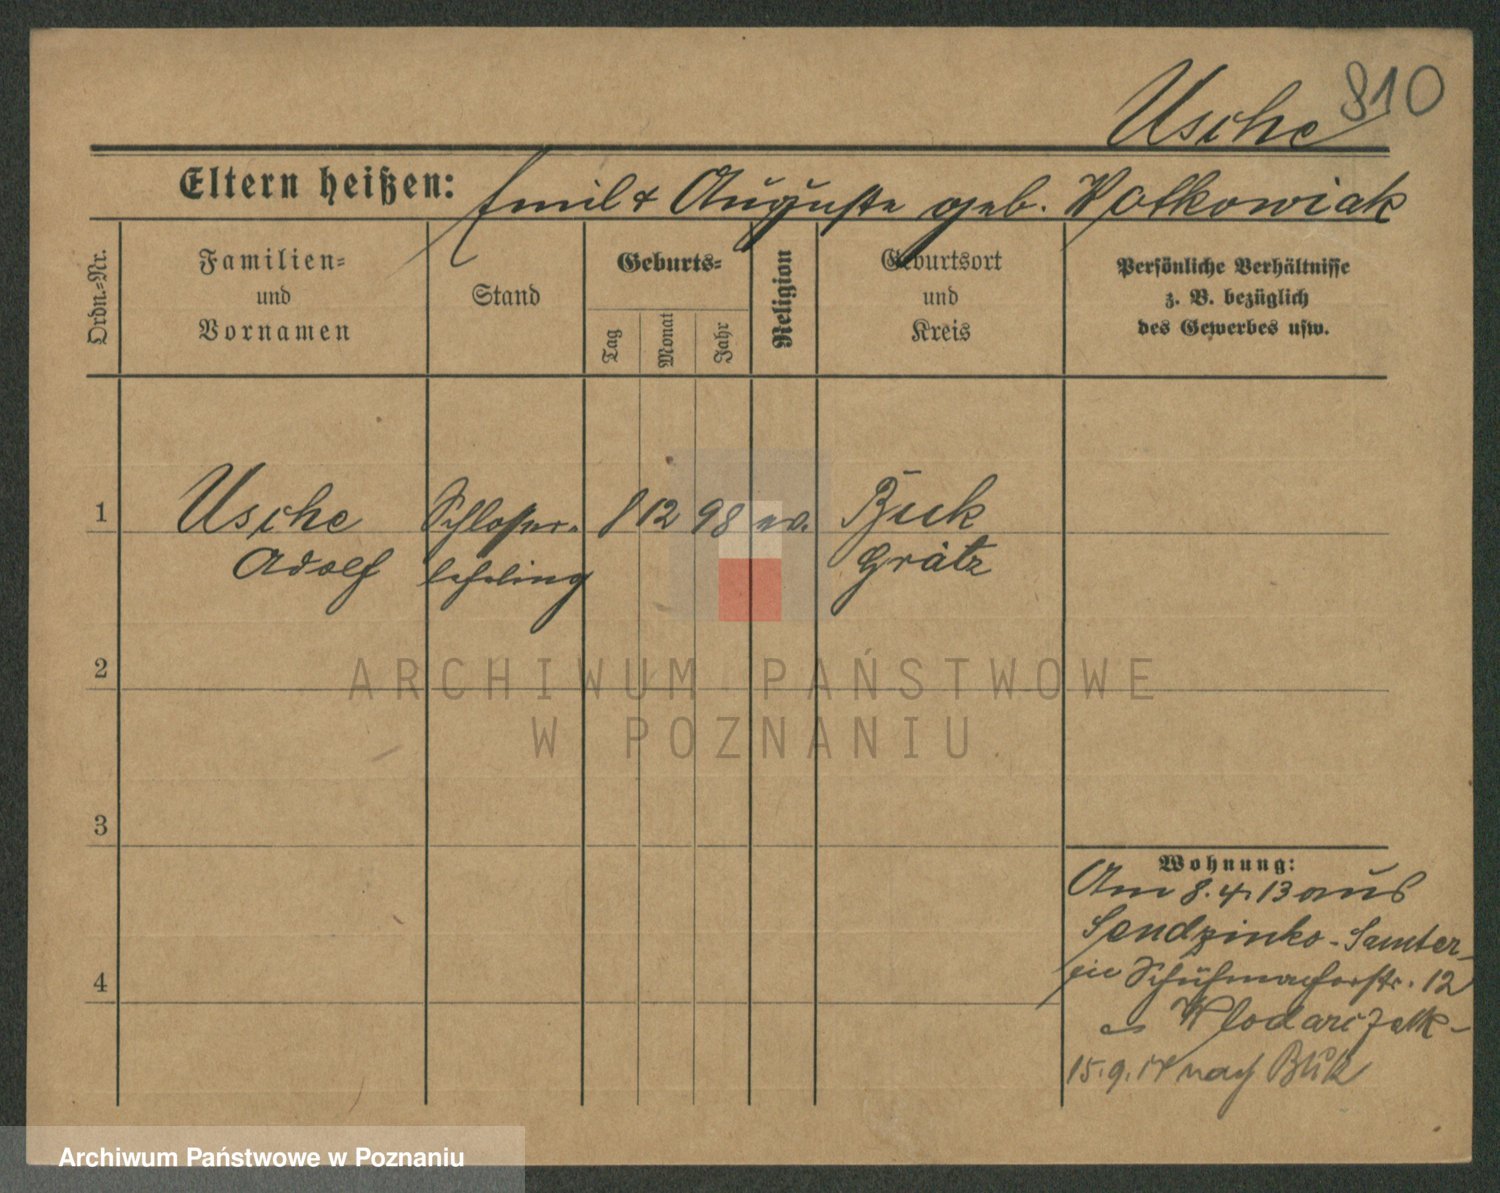 Usche 810
Eltern heißen: Emil & Auguste geb. Wolkowiak
Ordn.-Nr.
Familien-
und
Vornamen
Stand
Geburts-
Tag
Monat
Jahr
Religion
Geburtsort
und
Kreis
Persönliche Verhältnisse
z. B. bezüglich
des Gewerbes usw.
1 Usche Schlosser- 1 12 98 ev. Buk
Adolf lehrling Grätz
2
3
4
Wohnung:
Am 8.4.13 aus
Sendzinko-Samter-
Schuhmacherstr. 12
Wlodarczak-
15.9.14 nach Buk
ARCHIWUM PAŃSTWOWE
W POZNANIU
Archiwum Państwowe w Poznaniu